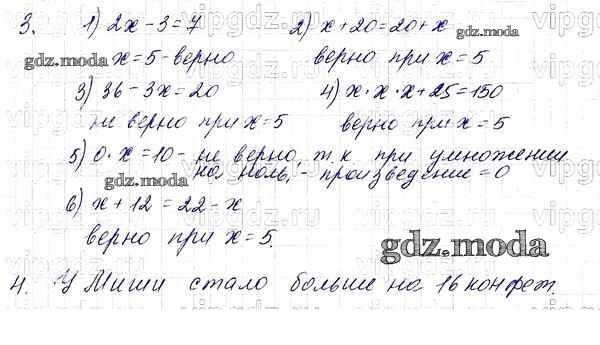 3. 1) 2x - 3 = 7 2) x + 20 = 20 + x
x = 5 - верно верно при x = 5
3) 36 - 3x = 20 4) x · x · x + 25 = 150
не верно при x = 5 верно при x = 5
5) 0 · x = 10 - не верно, т. к. при умножении
на ноль - произведение = 0
6) x + 12 = 22 - x
верно при x = 5.
4. У Миши стало больше на 16 конфет.
gdz.moda
gdz.moda
gdz.moda
gdz.moda
vipgdz.ru